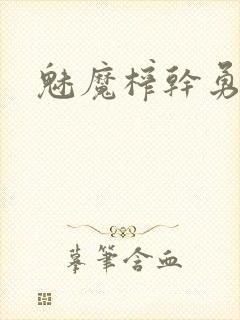 魅魔榨幹勇
摹筆含血